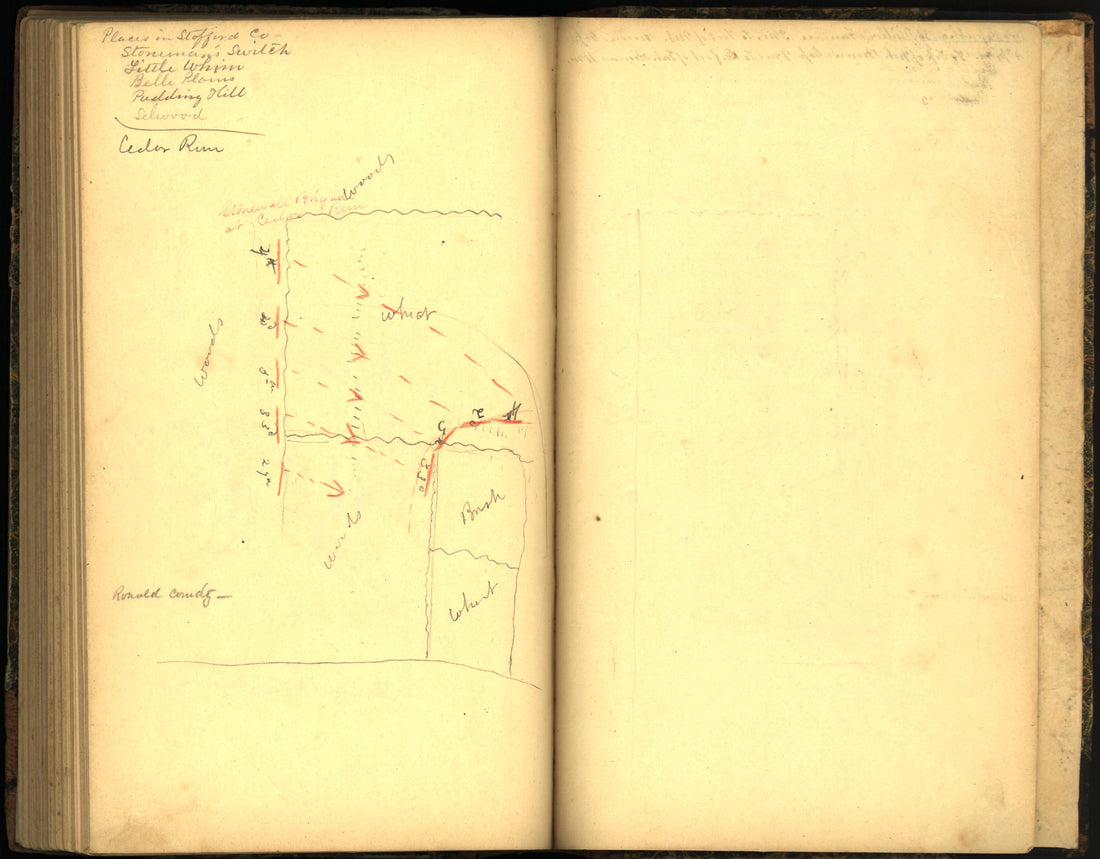 Places in Stafford Co—
Stoneman's Switch
Little Whim
Belle Plains
Pudding Hill
Selwood
Cedar Run
Woods
Stonewall Brigade
at Cedar Run
4th
2d
5th
33d
27th
Woods
Wheat
4th
2d
5th
33d
Woods
Brush
Wheat
Ronald Comdg—